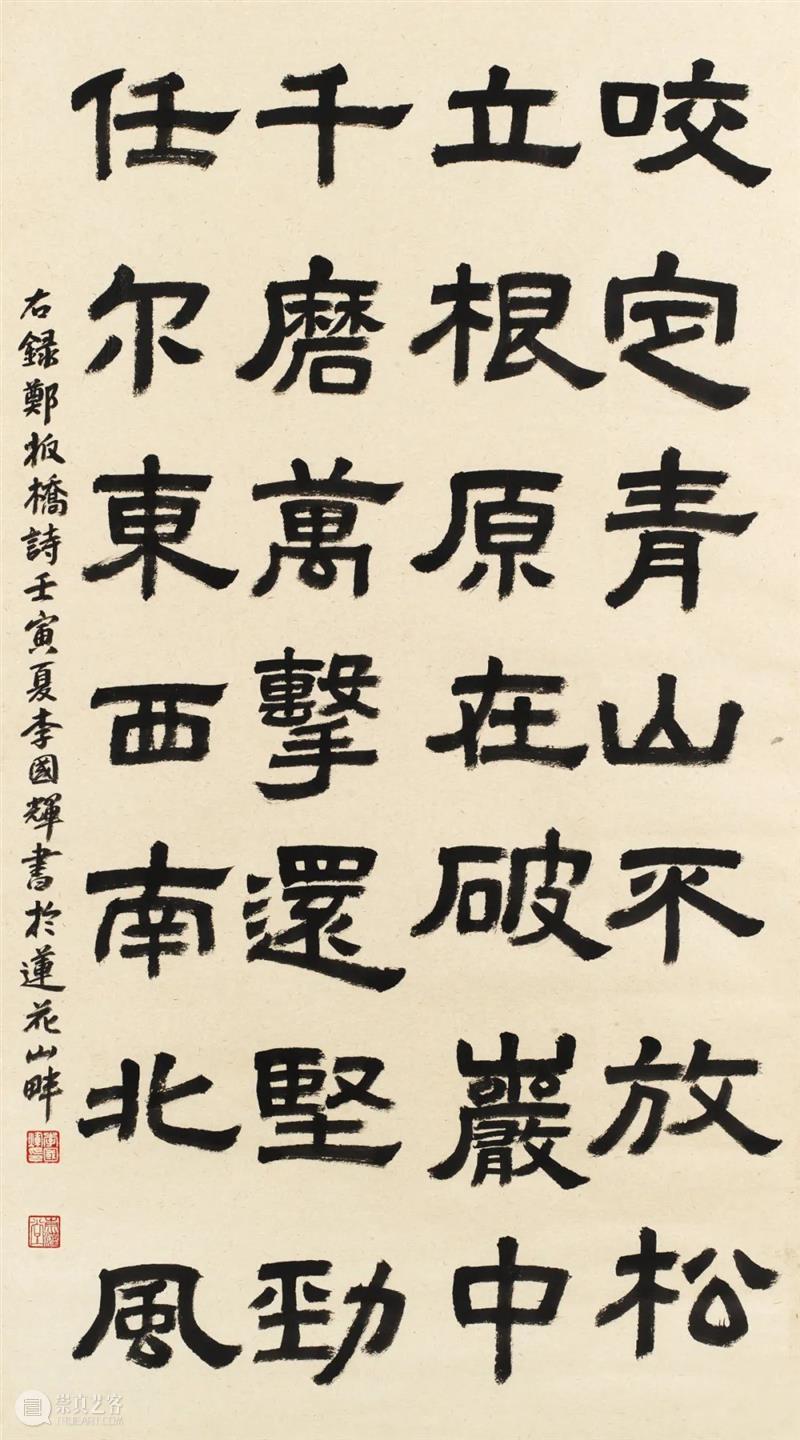 咬定青山不放松
立根原在破巖中
千磨萬擊還堅勁
任尔東西南北風
右録鄭板橋詩壬寅夏李國輝書於蓮花山畔
崇真艺客
TRUEART.COM